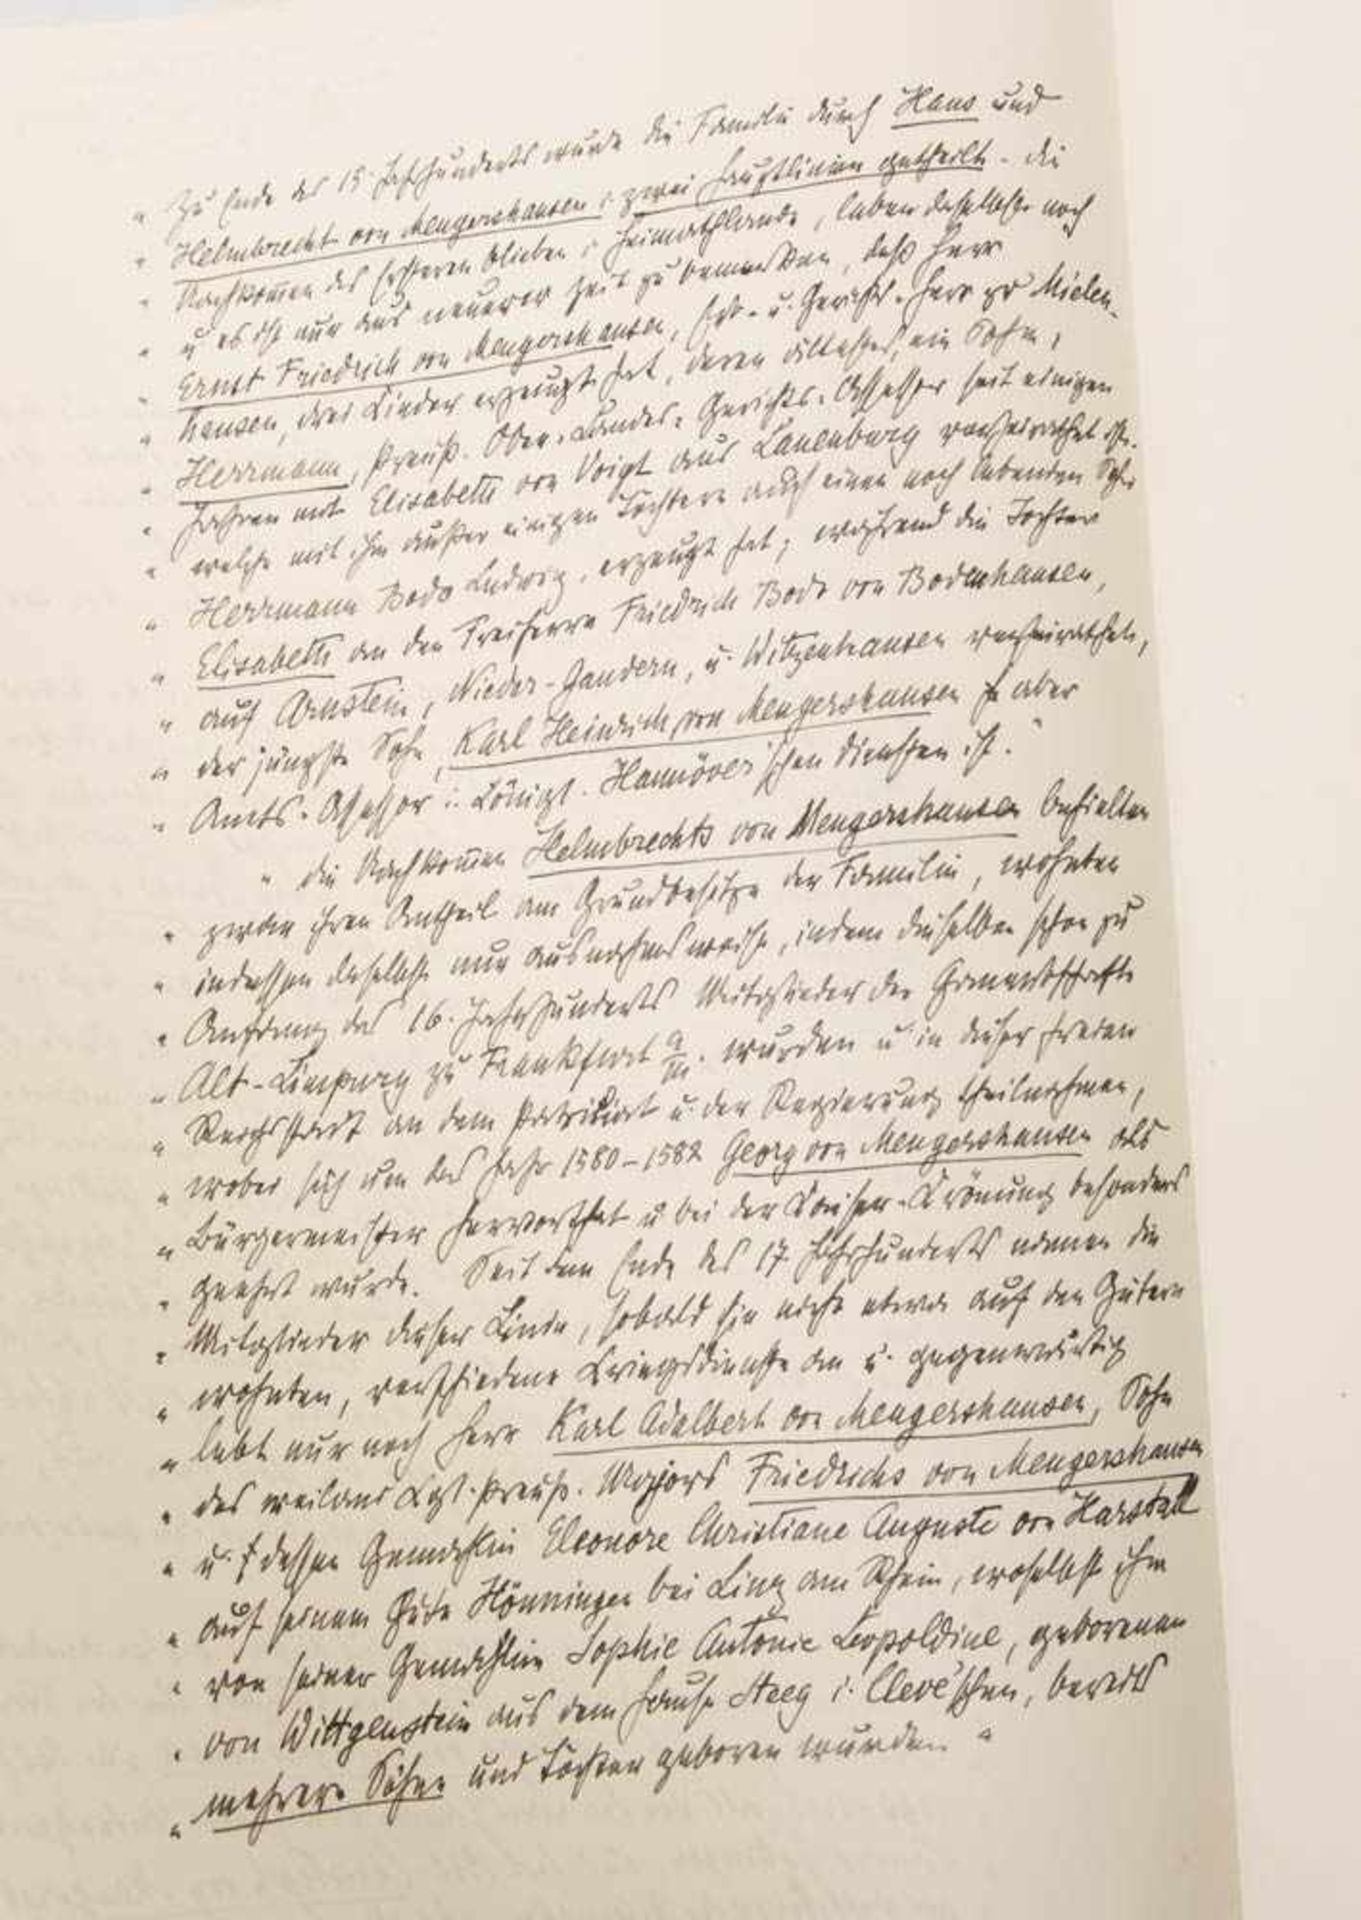 " Zu Ende des 15. Jahrhunderts wurde die Familie durch Haus und
" Helmbrecht von Mengershausen i. zwei Hauptlinien getheilt. – die
" Nachkommen des Ersteren blieben i. Heimathlande, leben daselbst noch
" u es ist nur aus neuerer Zeit zu bemerken, daß Herr
" Ernst Friedrich von Mengershausen, Erb- u. Gerichts-Herr zu Mielen-
" hausen, drei Kinder erzeugt hat, deren ältestes, ein Sohn,
" Herrmann, Preuß. Ober-Landes-Gerichts-Assessor seit einigen
" Jahren mit Elisabeth von Voigt aus Lauenburg verheirathet ist.
" welche mit ihm außer einigen Töchtern auch einen noch lebenden Sohn
" Herrmann Bodo Ludwig, erzeugt hat; während die Tochter
" Elisabeth an den Freiherrn Friedrich Bodo von Bodenhausen,
" auf Arnstein, Nieder-Gandern, u. Witzenhausen verheirathet,
" der jüngste Sohn, Karl Heinrich von Mengershausen aber
" Amts-Assessor i. Königl. Hannöver'schen Diensten ist."
" die Nachkommen Helmbrechts von Mengershausen behielten
" zwar ihren Antheil am Grundbesitze der Familie, wohnten
" indessen daselbst nur ausnahmsweise, indem dieselben schon zu
" Anfang des 16. Jahrhunderts Mitglieder der Ganerbschaft
" Alt-Limpurg zu Frankfurt a/m. wurden u in dieser freien
" Reichsstadt an dem Patriciat u. der Regierung theilnahmen,
" wobei sich um das Jahr 1580–1582 Georg von Mengershausen als
" Bürgermeister hervorthat u bei der Kaiser-Krönung besonders
" geehrt wurde. Seit dem Ende des 17. Jahrhunderts nahmen die
" Mitglieder dieser Linie, sobald sie nicht etwa auf den Gütern
" wohnten, verschiedene Kriegsdienste an u. gegenwärtig
" lebt nur noch Herr Karl Adalbert von Mengershausen, Sohn
" des weiland Kgl. Preuß. Majors Friedrichs von Mengershausen
" u. dessen Gemahlin Eleonore Christiane Auguste von Harstall
" auf seinem Gute Hönningen bei Linz am Rhein, woselbst ihm
" von seiner Gemahlin Sophie Antonie Leopoldine, geborenen
" von Wittgenstein aus dem Hause Steeg i. Cleve'schen, bereits
" mehrere Söhne und Töchter geboren wurden. "